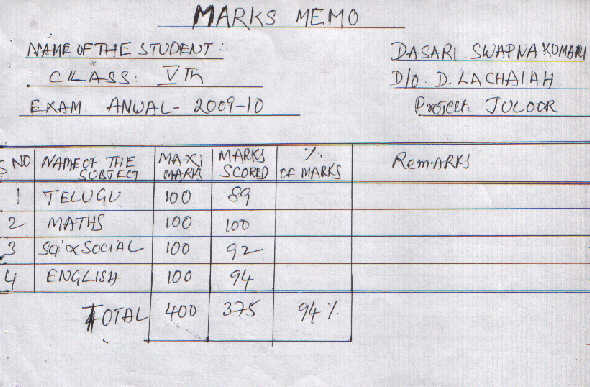 MARKS MEMO
NAME OF THE STUDENT: DASARI SWAPNA KUMARI
CLASS: Vth D/o. D. LACHAIAH
EXAM ANUAL- 2009-10 Project JULOOR
S NO NAME OF THE SUBJECT MAXI MARKS MARKS SCORED % OF MARKS REMARKS
1 TELUGU 100 89
2 MATHS 100 100
3 Sci & SOCIAL 100 92
4 ENGLISH 100 94
TOTAL 400 375 94 %